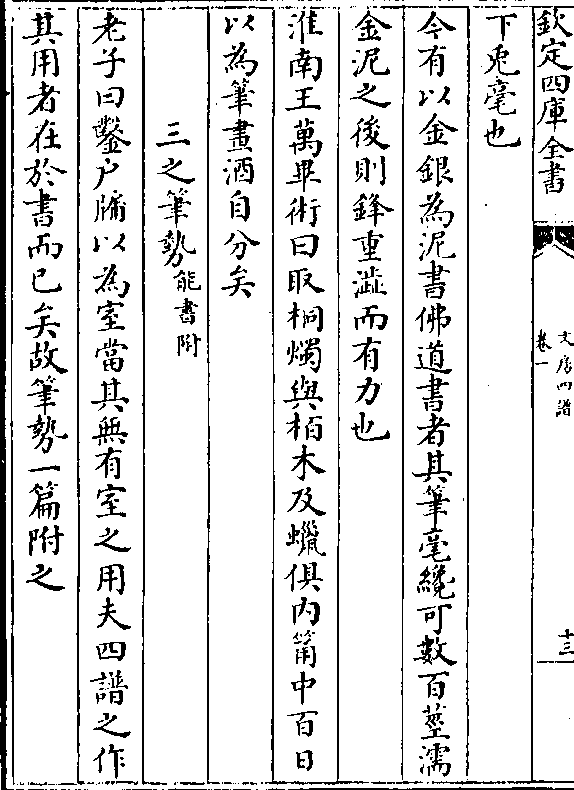 欽定四庫全書
文房四譜
卷一
十三
下兎毫也
今有以金銀為泥書佛道書者其筆毫纔可數百莖濡
金泥之後則鋒重澁而有力也
淮南王萬畢術曰取桐燭與栢木及蠟俱内筩中百日
以為筆畫酒自分矣
三之筆勢能書附
老子曰鑿户牖以為室當其無有室之用夫四譜之作
其用者在於書而已矣故筆勢一篇附之